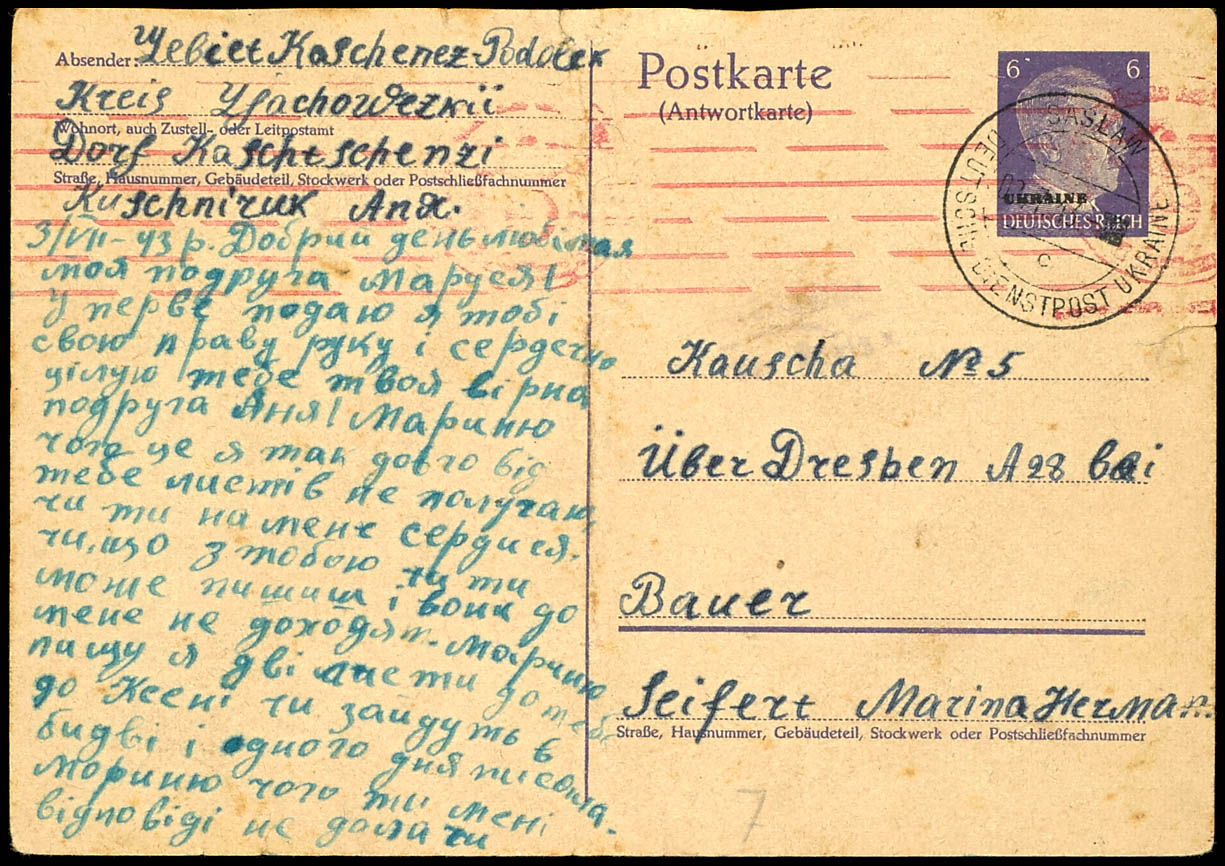 Absender: Gebiet Kaschenez-Podolsk
Kreis Isachowezkii
Wohnort, auch Zustell- oder Leitpostamt
Dorf Kaschtschenzi
Straße, Hausnummer, Gebäudeteil, Stockwerk oder Postschließfachnummer
Kuschniruk Ana.
3/VII-43 р. Добрий день любімая
моя подруга Маруся!
У перве подаю я тобі
свою праву руку і сердечно
цілую тебе твоя вірна
подруга Аня! Марино
чого це я так довго від
тебе листів не получаю,
чи ти на мене сердися.
чи, що з тобою чи ти
може пишиш і вони до
мене не доходят. Марино
пишу я дві листи до тебе
до Ксені чи зайдуть в
бидві і одного дня писала.
Марино чого ти мені
відповіді не дала чи
Postkarte
(Antwortkarte)
6 6
UKRAINE
DEUTSCHES REICH
GASLAW
DEUTSCHE DIENSTPOST UKRAINE
c
Kauscha № 5
Über Dresden A28 bei
Bauer
Seifert Marina Herman
Straße, Hausnummer, Gebäudeteil, Stockwerk oder Postschließfachnummer
7